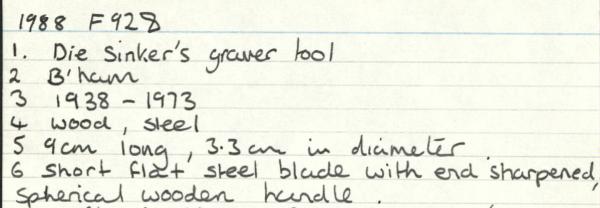 1988 F928
1. Die Sinker's graver tool
2 B'ham
3 1938 - 1973
4 wood, steel
5 9cm long, 3.3cm in diameter.
6 short flat steel blade with end sharpened,
spherical wooden handle.